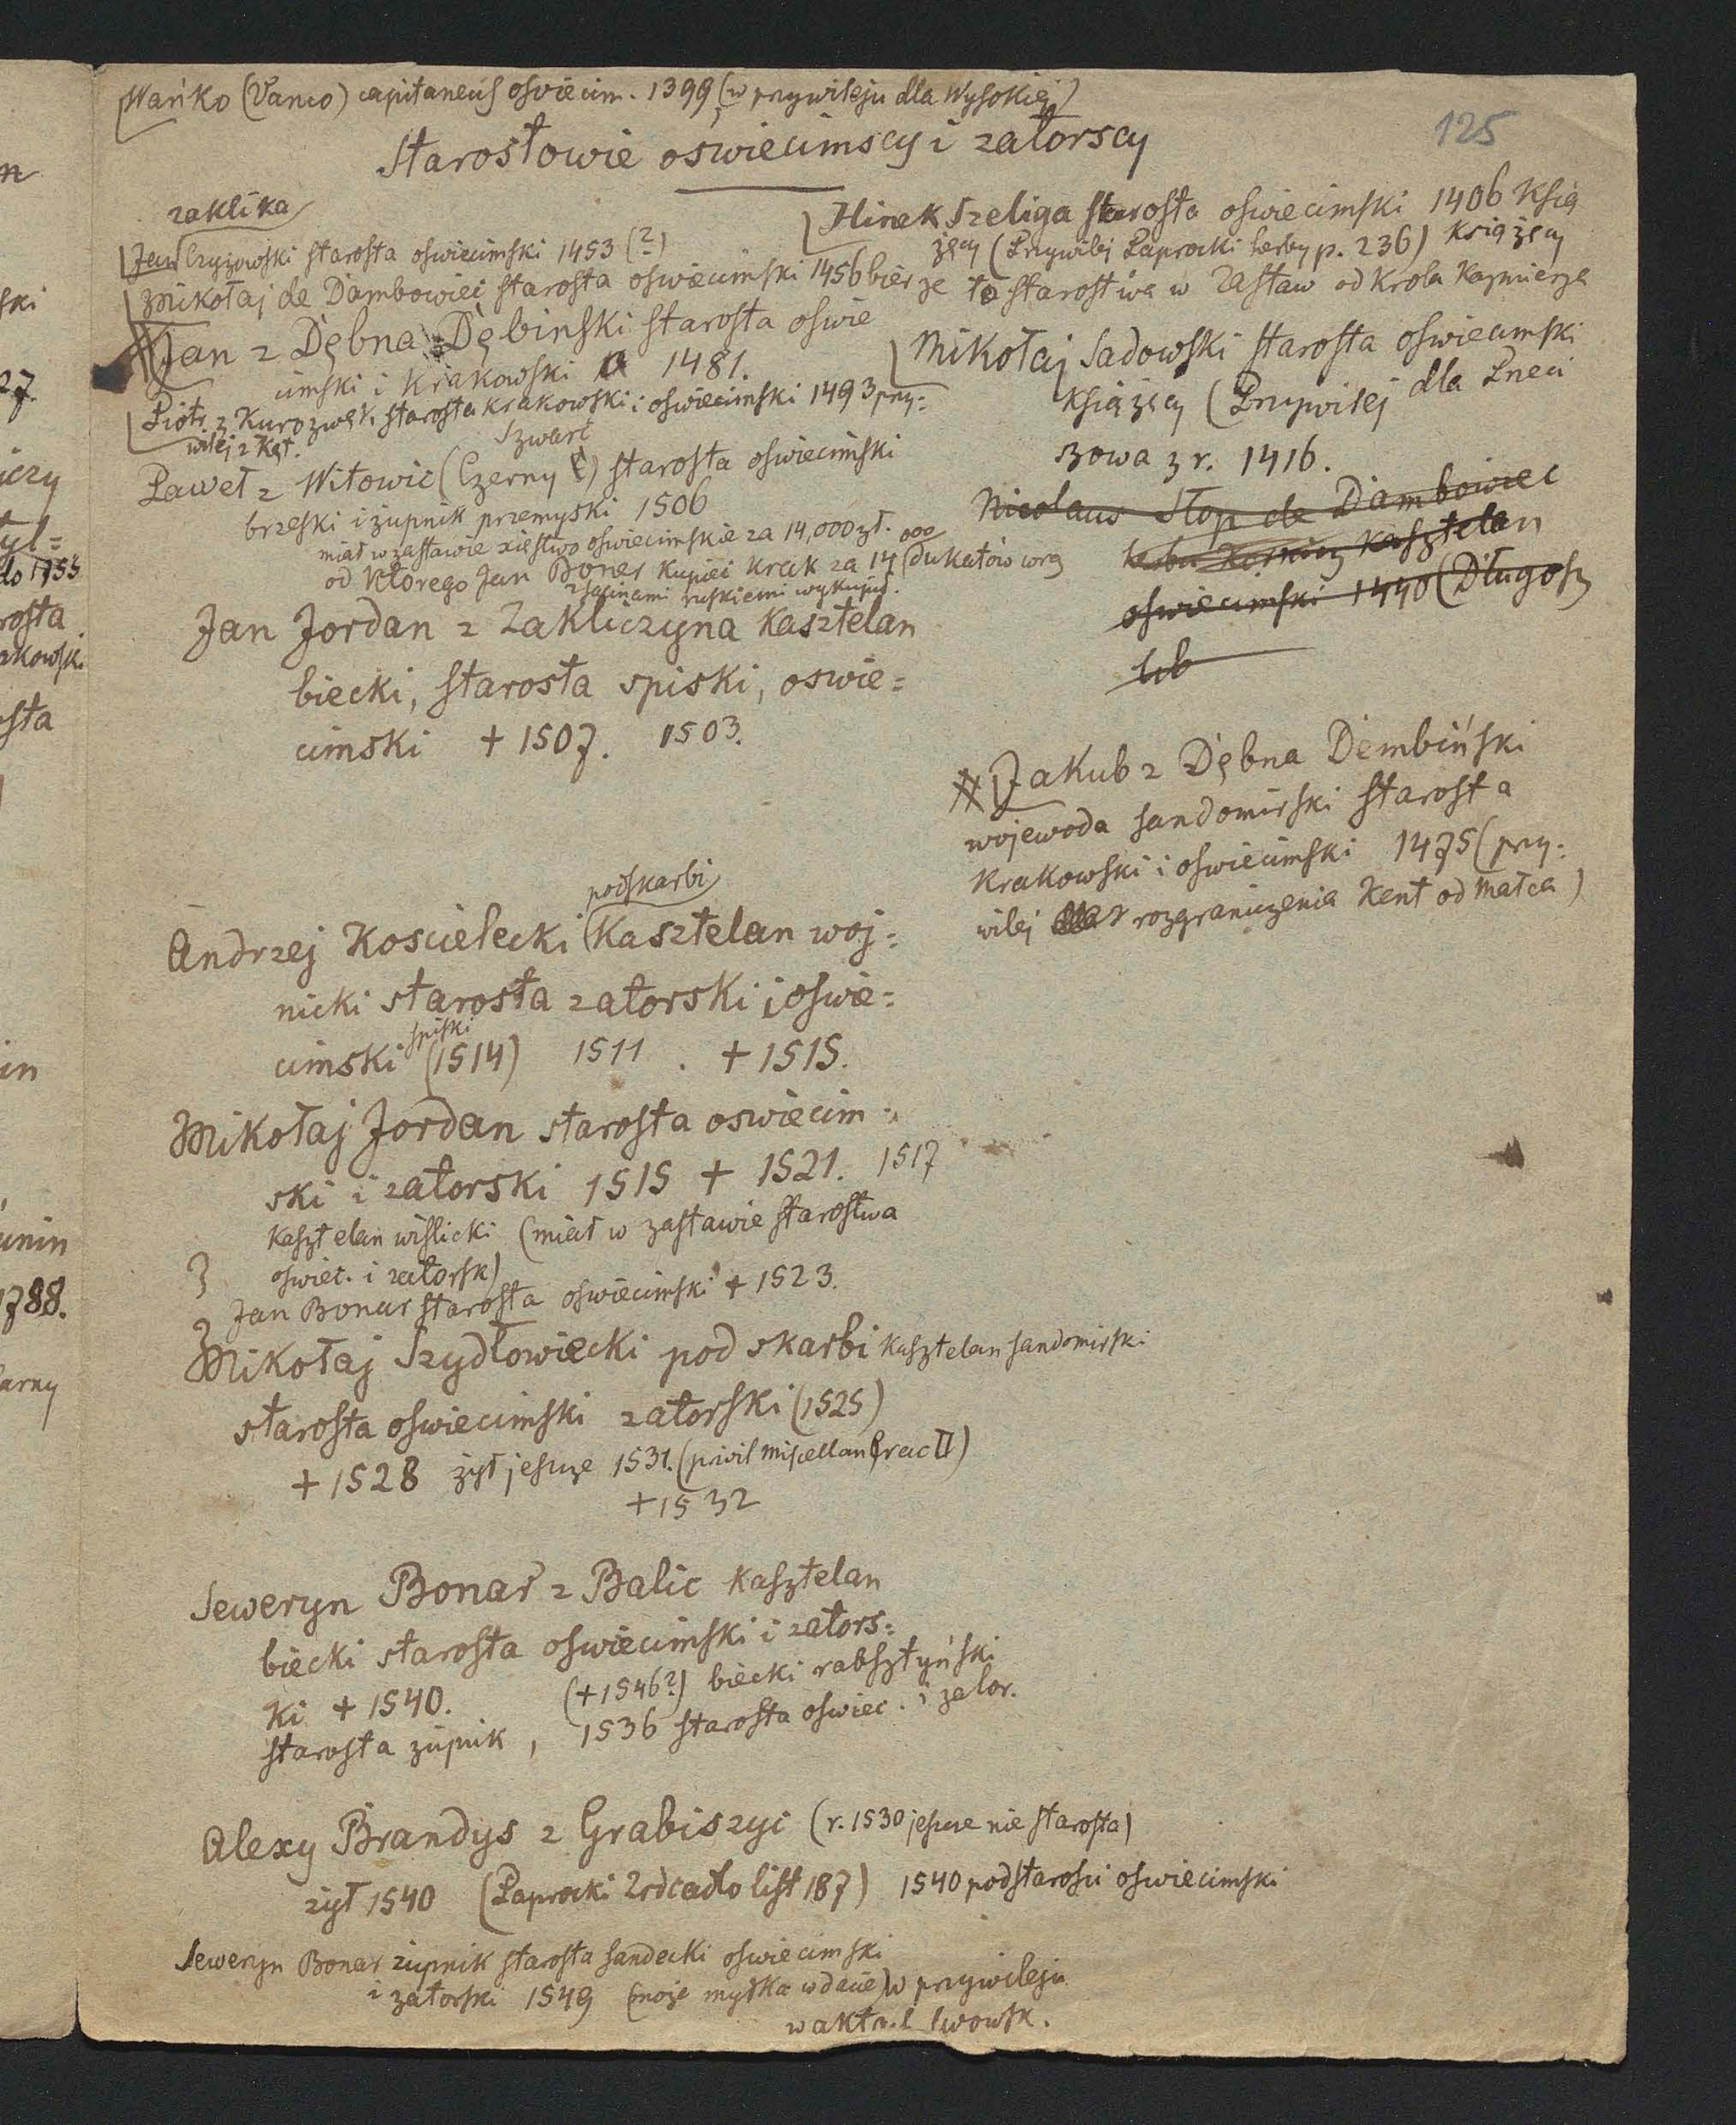 Wańko (Vanco) capitaneus osviecim. 1399 (w przywileju dla Wysokiej)
125
Starostowie oświecimscy i zatorscy
zaklika
Jan Czyżowski starosta oswiecimski 1453 (?)
Mikołaj de Dambowiec starosta oswiecimski 1456 bierze to starostwa w zastaw od Krola Kazmierza
Jan z Dębna Dębinski starosta oswie
cimski i Krakowski 1481.
Piotr z Kurozwęk starosta krakowski i oswiecimski 1493 przy=
wilej z Kęt.
Szwarc
Paweł z Witowic (Czerny) starosta oswiecimski
brzeski i żupnik przemyski 1506
miał w zastawie xięstwo oswiecimskie za 14,000 zł.
od ktorego Jan Boner kupiec krak za 14 000 dukatów wraz
z salinami ruskiemi wykupił.
Jan Jordan z Zakliczyna kasztelan
biecki, starosta spiski, oswie=
cimski + 1507. 1503.
podskarbi
Andrzej Koscielecki Kasztelan woj=
nicki starosta zatorski i oswie=
spiski
cimski (1514) 1511. + 1515.
Mikołaj Jordan starosta oswiecim=
ski i zatorski 1515 + 1521. 1517
kasztelan wislicki (miał w zastawie starostwa
oswiec. i zatorsk)
Jan Bonar starosta oswiecimski + 1523.
Mikołaj Szydłowiecki podskarbi kasztelan sandomirski
starosta oswiecimski zatorski (1525)
+ 1528 żył jeszcze 1531. (privil miscellan Crac II)
+ 1532
Seweryn Bonar z Balic kasztelan
biecki starosta oswiecimski i zators=
ki + 1540. (+ 1546?) biecki rabsztyński
starosta żupnik, 1536 starosta oswiec. i zator.
Alexy Brandys z Grabiszyc (r. 1530 jeszcze nie starosta)
żył 1540 (Paprocki Zrdcadlo list 187) 1540 podstarosci oswiecimski
Seweryn Bonar żupnik starosta sandecki oswiecimski
i zatorski 1549 (może myłka w dacie) w przywileju
w akta.l lwowsk.
Hinek Szeliga starosta oswiecimski 1406 Ksią
żęcy (Przywilej Paprocki herby p. 236) Książęcy
Mikołaj Sadowski starosta oswiecimski
książęcy (Przywilej dla Pneci
szowa z r. 1416.
Nicolaus Stop de Dambowiec
herbu kasztelan
oswiecimski 1440 (Długosz
lib
# Jakub z Dębna Dembiński
wojewoda sandomirski starosta
Krakowski i oswiecimski 1475 (przy=
wilej rozgraniczenia Kent od Malca)
n
ski
27.
iczy
tyl=
do 1755
rosta
akowski
osta
in
unin
1788.
arny